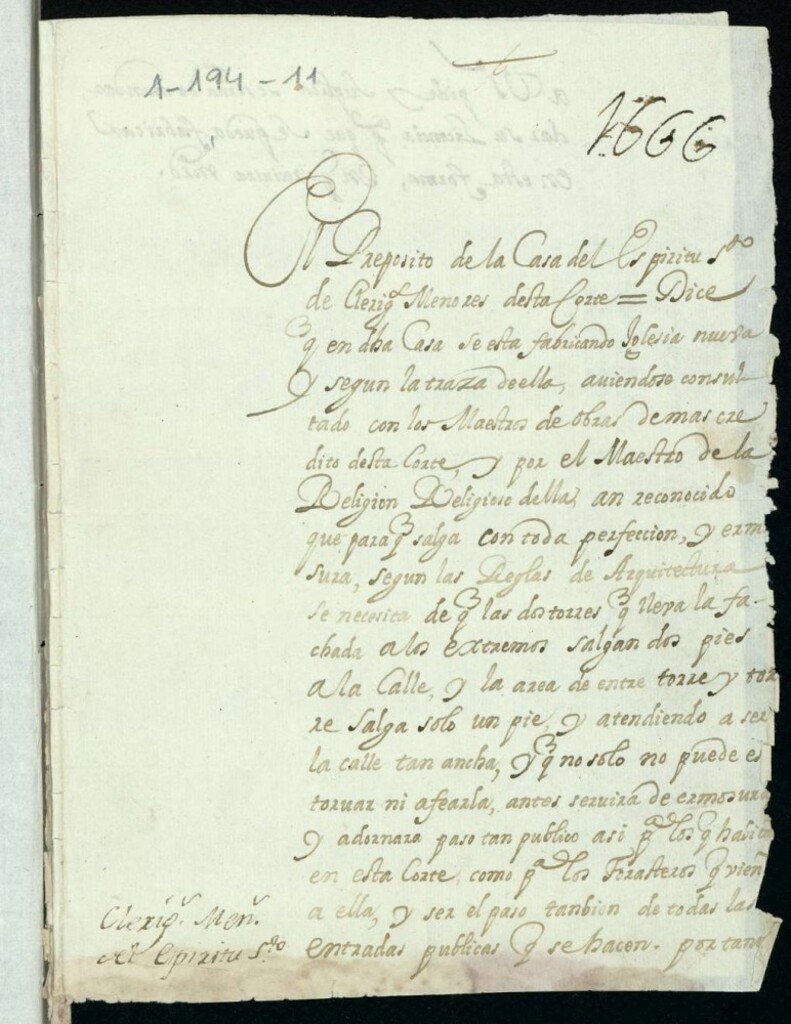 1-194-11
1666
El Preposito de la Casa del Espiritu S.to
de Clerig.s Menores desta Corte = Dice
q en dha Casa se esta fabricando Iglesia nueva
y segun la traza de ella, auiendose consul
tado con los Maestros de obras de mas cre
dito desta Corte, y por el Maestro de la
Religion Religioso della, an reconocido
que para q salga con toda perfeccion, y ermo
sura, segun las Reglas de Arquitectura
se necesita de q las dos torres q lleva la fa-
chada a los extremos salgan dos pies
a la Calle, y la area de entre torre y tor
re salga solo un pie, y atendiendo a ser
la calle tan ancha, y q no solo no puede es
toruar ni afearla, antes seruira de ermosura
y adornara paso tan publico asi p.a los q habitan
en esta Corte, como p.a los Forasteros q vien
a ella, y ser el paso tanbien de todas las
entradas publicas q se hacen. por tanto
Clerig.s Men.s
del Espiritu S.to